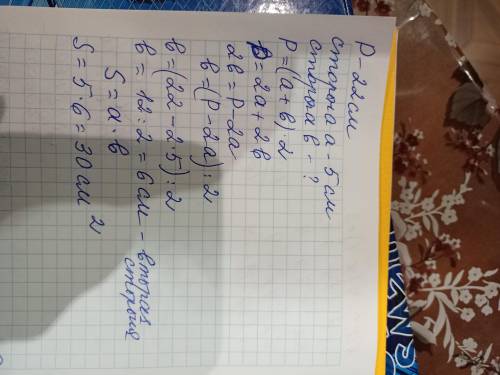 P - 22 см
сторона а - 5 см
сторона в - ?
P = (а + в) · 2
P = 2а + 2в
2в = P - 2а
в = (P - 2а) : 2
в = (22 - 2·5) : 2
в = 12 : 2 = 6 см - вторая сторона
S = а · в
S = 5 · 6 = 30 см 2